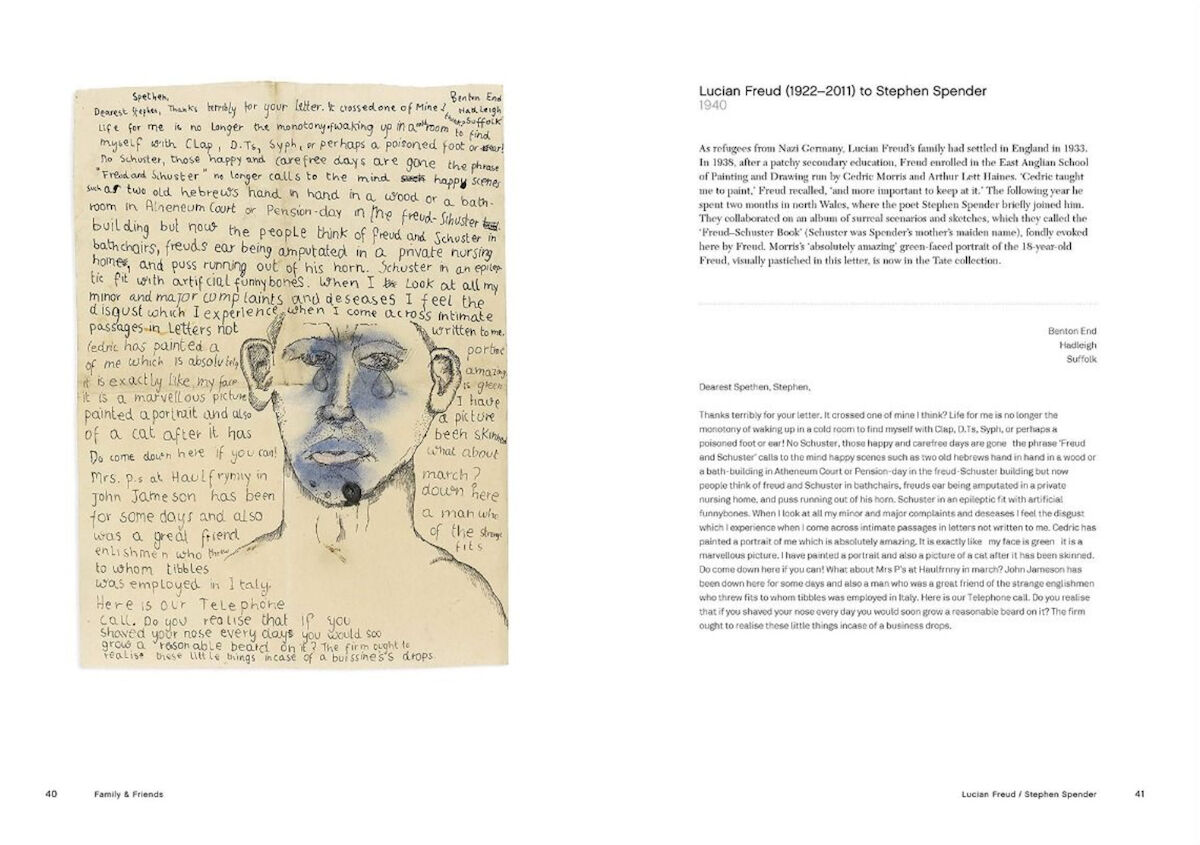 Spethen,
Benton End
Dearest Stephen, Thanks terribly for your letter. It crossed one of Mine I
Hadleigh
think? Suffolk
Life for me is no longer the monotony of waking up in a cold room to find
myself with Clap, D.Ts, Syph, or perhaps a poisoned foot or ear!
No Schuster, those happy and carefree days are gone the phrase
"Freud and Schuster" no longer calls to the mind such happy scenes
such as two old hebrews hand in hand in a wood or a bath-
room in Atheneum Court or Pension-day in the freud-Schuster
building but now the people think of freud and Schuster in
bathchairs, freuds ear being amputated in a private nursing
home, and puss running out of his horn. Schuster in an epilep-
tic fit with artificial funnybones. When I look at all my
minor and major complaints and deseases I feel the
disgust which I experience when I come across intimate
passages in letters not written to me.
Cedric has painted a portrait
of me which is absolutely amazing.
it is exactly like my face is green
it is a marvellous picture I have
painted a portrait and also a picture
of a cat after it has been skinned
Do come down here if you can! What about
Mrs. P.s at Haulfrynny in march?
John Jameson has been down here
for some days and also a man who
was a great friend of the strange
enlishmen who threw fits
to whom tibbles
was employed in Italy.
Here is our Telephone
call. Do you realise that if you
shaved your nose every days you would soo
grow a reasonable beard on it? The firm ought to
realise these little things incase of a buissines's drops.
40 Family & Friends
Lucian Freud (1922–2011) to Stephen Spender
1940
As refugees from Nazi Germany, Lucian Freud's family had settled in England in 1933.
In 1938, after a patchy secondary education, Freud enrolled in the East Anglian School
of Painting and Drawing run by Cedric Morris and Arthur Lett Haines. 'Cedric taught
me to paint,' Freud recalled, 'and more important to keep at it.' The following year he
spent two months in north Wales, where the poet Stephen Spender briefly joined him.
They collaborated on an album of surreal scenarios and sketches, which they called the
'Freud–Schuster Book' (Schuster was Spender's mother's maiden name), fondly evoked
here by Freud. Morris's 'absolutely amazing' green-faced portrait of the 18-year-old
Freud, visually pastiched in this letter, is now in the Tate collection.
Benton End
Hadleigh
Suffolk
Dearest Spethen, Stephen,
Thanks terribly for your letter. It crossed one of mine I think? Life for me is no longer the
monotony of waking up in a cold room to find myself with Clap, D.Ts, Syph, or perhaps a
poisoned foot or ear! No Schuster, those happy and carefree days are gone the phrase 'Freud
and Schuster' calls to the mind happy scenes such as two old hebrews hand in hand in a wood or
a bath-building in Atheneum Court or Pension-day in the freud-Schuster building but now
people think of freud and Schuster in bathchairs, freuds ear being amputated in a private
nursing home, and puss running out of his horn. Schuster in an epileptic fit with artificial
funnybones. When I look at all my minor and major complaints and deseases I feel the disgust
which I experience when I come across intimate passages in letters not written to me. Cedric has
painted a portrait of me which is absolutely amazing. It is exactly like my face is green it is a
marvellous picture. I have painted a portrait and also a picture of a cat after it has been skinned.
Do come down here if you can! What about Mrs P's at Haulfrnny in march? John Jameson has
been down here for some days and also a man who was a great friend of the strange englishmen
who threw fits to whom tibbles was employed in Italy. Here is our Telephone call. Do you realise
that if you shaved your nose every day you would soon grow a reasonable beard on it? The firm
ought to realise these little things incase of a business drops.
Lucian Freud / Stephen Spender 41